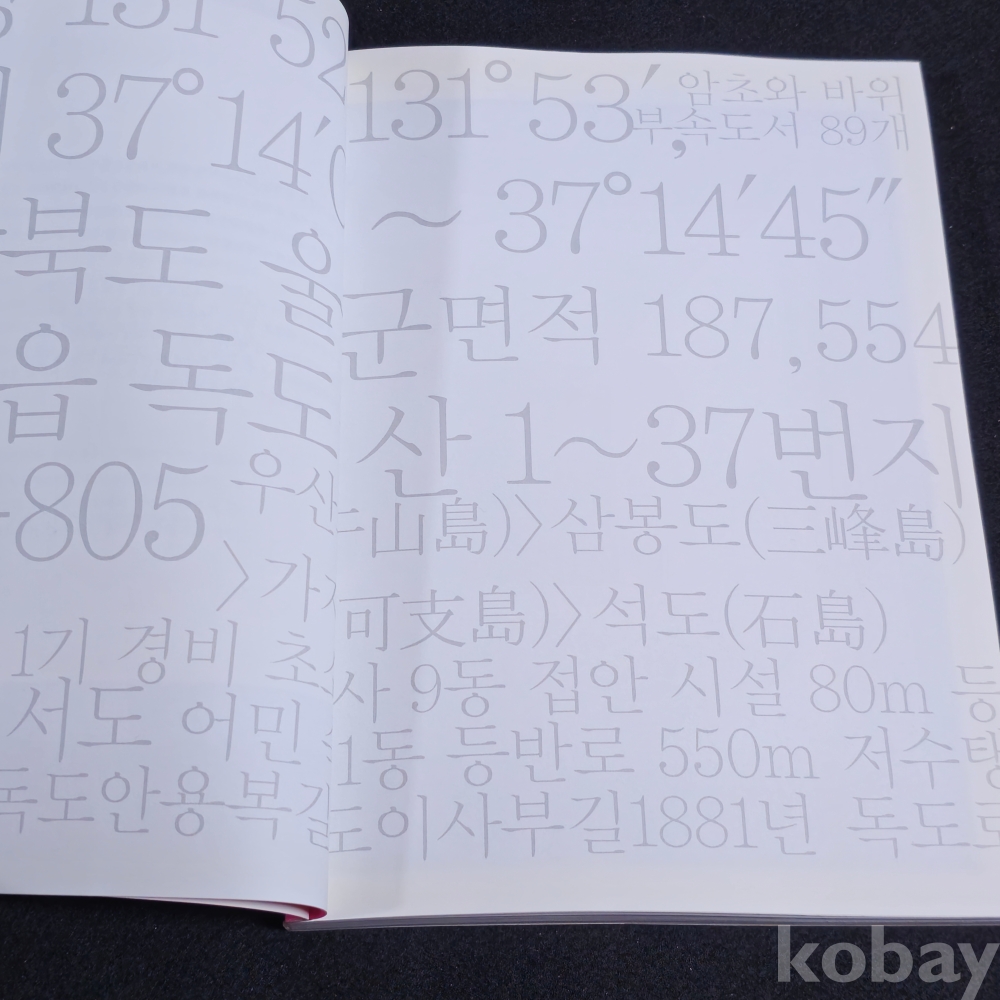 131 52
37°14′(
북도 울
읍 독도
805 우산
〉가
1기 경비 초
서도 어민
독도안용복길
131°53′, 암초와 바위
부속도서 89개
~ 37°14′45″
군면적 187,554
산 1~37번지
山島)〉삼봉도(三峰島)
可支島)〉석도(石島)
사 9동 접안 시설 80m 등
1동 등반로 550m 저수탱
도이사부길1881년 독도로
kobay